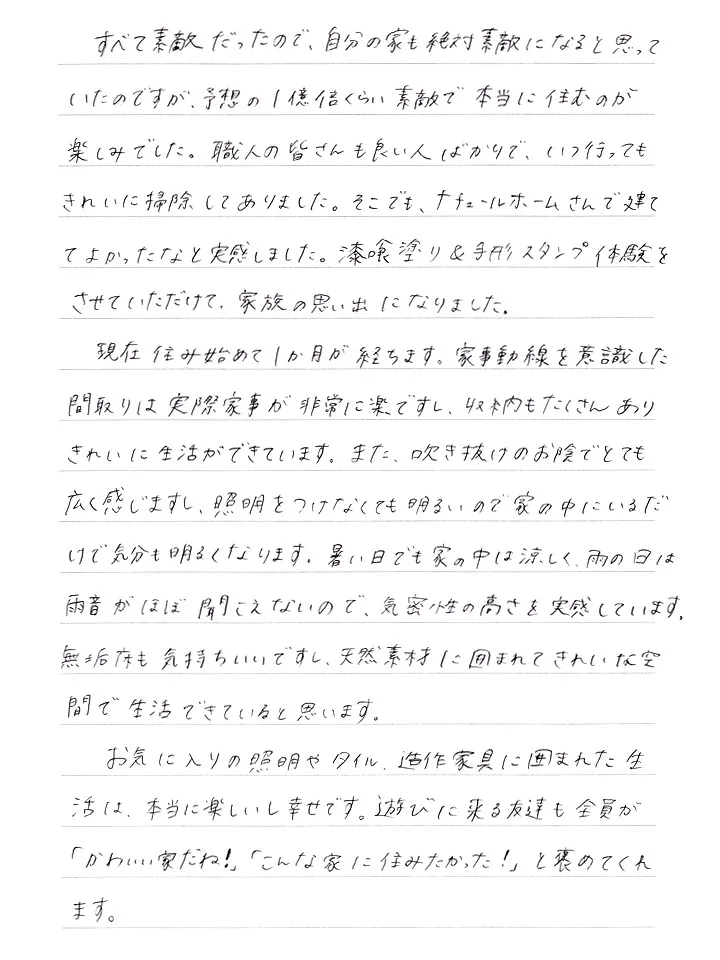 すべて素敵だったので、自分の家も絶対素敵になると思って
いたのですが、予想の1億倍くらい素敵で本当に住むのが
楽しみでした。職人の皆さんも良い人ばかりで、いつ行っても
きれいに掃除してありました。そこでも、ナチュールホームさんで建て
てよかったなと実感しました。漆喰塗り&手形スタンプ体験を
させていただけて、家族の思い出になりました。
現在住み始めて1か月が経ちます。家事動線を意識した
間取りは実際家事が非常に楽ですし、収納もたくさんあり
きれいに生活ができています。また、吹き抜けのお陰でとても
広く感じますし、照明をつけなくても明るいので家の中にいるだ
けで気分も明るくなります。暑い日でも家の中は涼しく、雨の日は
雨音がほぼ聞こえないので、気密性の高さを実感しています。
無垢床も気持ちいいですし、天然素材に囲まれてきれいな空
間で生活できていると思います。
お気に入りの照明やタイル、造作家具に囲まれた生
活は、本当に楽しいし幸せです。遊びに来る友達も全員が
「かわいい家だね!」「こんな家に住みたかった!」と褒めてくれ
ます。